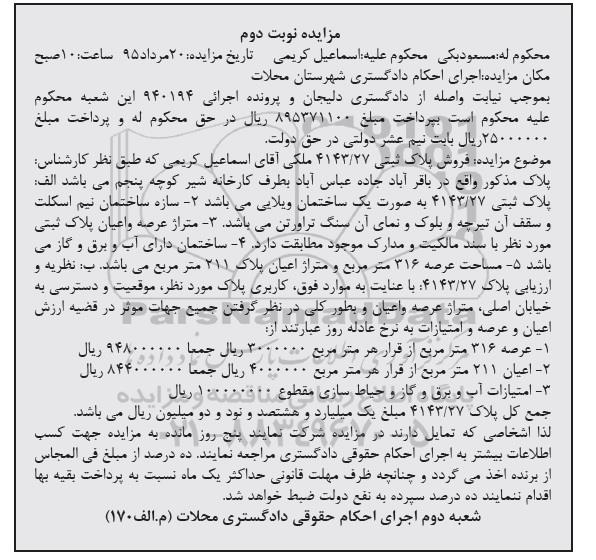 مزایده نوبت دوم
محکوم له:مسعودبکی محکوم علیه:اسماعیل کریمی تاریخ مزایده:۲۰مرداد۹۵ ساعت:۱۰صبح
مکان مزایده:اجرای احکام دادگستری شهرستان محلات
بموجب نیابت واصله از دادگستری دلیجان و پرونده اجرائی ۹۴۰۱۹۴ این شعبه محکوم
علیه محکوم است بپرداخت مبلغ ۸۹۵۳۷۱۱۰۰ ریال در حق محکوم له و پرداخت مبلغ
۲۵۰۰۰۰۰۰ریال بابت نیم عشر دولتی در حق دولت.
موضوع مزایده: فروش پلاک ثبتی ۴۱۴۳/۲۷ ملکی آقای اسماعیل کریمی که طبق نظر کارشناس:
پلاک مذکور واقع در باقر آباد جاده عباس آباد بطرف کارخانه شیر کوچه پنجم می باشد الف:
پلاک ثبتی ۴۱۴۳/۲۷ به صورت یک ساختمان ویلایی می باشد ۲- سازه ساختمان نیم اسکلت
و سقف آن تیرچه و بلوک و نمای آن سنگ تراورتن می باشد. ۳- متراژ عرصه واعیان پلاک ثبتی
مورد نظر با سند مالکیت و مدارک موجود مطابقت دارد. ۴- ساختمان دارای آب و برق و گاز می
باشد ۵- مساحت عرصه ۳۱۶ متر مربع و متراژ اعیان پلاک ۲۱۱ متر مربع می باشد. ب: نظریه و
ارزیابی پلاک ۴۱۴۳/۲۷: با عنایت به موارد فوق، کاربری پلاک مورد نظر، موقعیت و دسترسی به
خیابان اصلی، متراژ عرصه واعیان و بطور کلی در نظر گرفتن جمیع جهات موثر در قضیه ارزش
اعیان و عرصه و امتیازات به نرخ عادله روز عبارتند از:
۱- عرصه ۳۱۶ متر مربع از قرار هر متر مربع ۳۰۰۰۰۰۰ ریال جمعا ۹۴۸۰۰۰۰۰۰ ریال
۲- اعیان ۲۱۱ متر مربع از قرار هر متر مربع ۴۰۰۰۰۰۰ ریال جمعا ۸۴۴۰۰۰۰۰۰ ریال
۳- امتیازات آب و برق و گاز و حیاط سازی مقطوع ۱۰۰۰۰۰۰۰۰ ریال
جمع کل پلاک ۴۱۴۳/۲۷ مبلغ یک میلیارد و هشتصد و نود و دو میلیون ریال می باشد.
لذا اشخاصی که تمایل دارند در مزایده شرکت نمایند پنج روز مانده به مزایده جهت کسب
اطلاعات بیشتر به اجرای احکام حقوقی دادگستری مراجعه نمایند. ده درصد از مبلغ فی المجاس
از برنده اخذ می گردد و چنانچه ظرف مهلت قانونی حداکثر یک ماه نسبت به پرداخت بقیه بها
اقدام ننمایند ده درصد سپرده به نفع دولت ضبط خواهد شد.
شعبه دوم اجرای احکام حقوقی دادگستری محلات (م.الف۱۷۰)